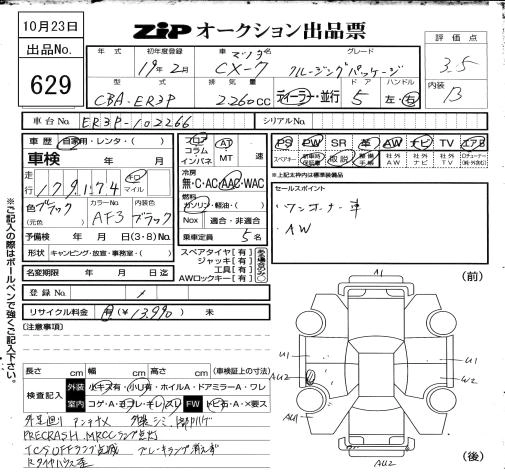 10月23日
ZiP オークション出品票
出品No.
629
年式 初年度登録 車名 グレード
19年2月 マツダ CX-7 クルージングパッケージ
型式 排気量 ドア ハンドル
CBA-ER3P 2,260cc ディーラー・並行 5 左・右
評価点
3.5
内装
B
車台No. ER3P-102266 シリアルNo.
車歴 自家用・レンタ・( )
車検 年 月 日
走行 179,174 キロ マイル
色 ブラック (元色) カラーNo. AF3 内装色 ブラック
予備検 年 月 日(3・8)No.
形状 キャンピング・放宣・事務室・( )
名変期限 年 月 日迄
登録No.
リサイクル料金 有(¥13,990) 未
フロア コラム インパネ AT MT 速
冷房 無・C・AC・AAC・WAC
燃料 ガソリン・軽油・( )
Nox 適合・非適合
乗車定員 5名
スペアタイヤ【有】
ジャッキ【有】
工具【有】
AWロックキー【有】
PS PW SR 革 AW ナビ TV エアB
スペアキー 取説 整備手帳 社外AW 社外ナビ 社外TV
※上記太枠内は標準装備品
セールスポイント
・ワンオーナー車
・AW
(注意事項)
長さ cm 幅 cm 高さ cm (車検証上の寸法)
検査記入 外装 小キズ有・小U有・ホイルA・ドアミラーA・ワレ
室内 コゲ・A・ヨゴレ・キレ・スレ FW トビ石・A・X要ス
PRECRASH MRCCランプ点灯
TCS OFFランプ点滅 ブレーキランプ消えず
(前)
A1
U1 U1
AU2 W2
AU1
AU2
(後)
※ご記入の際はボールペンで強くご記入下さい。